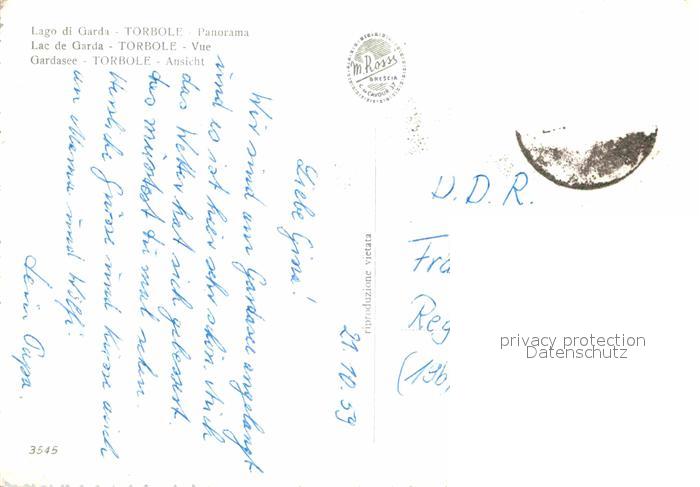 Lago di Garda - TORBOLE - Panorama
Lac de Garda - TORBOLE - Vue
Gardasee - TORBOLE - Ansicht
M. Rossi
BRESCIA
21.10.59
Liebe Gina!
Wir sind am Gardasee angelangt
und es ist hier sehr schön. Auch
das Wetter hat sich gebessert.
Das müsstest Du mal sehen.
Herzliche Grüsse und Küsse auch
an Mama und Wölfi.
Dein Papa.
3545
riproduzione vietata
D.D.R.
Fra
Reg
(19b,
privacy protection
Datenschutz